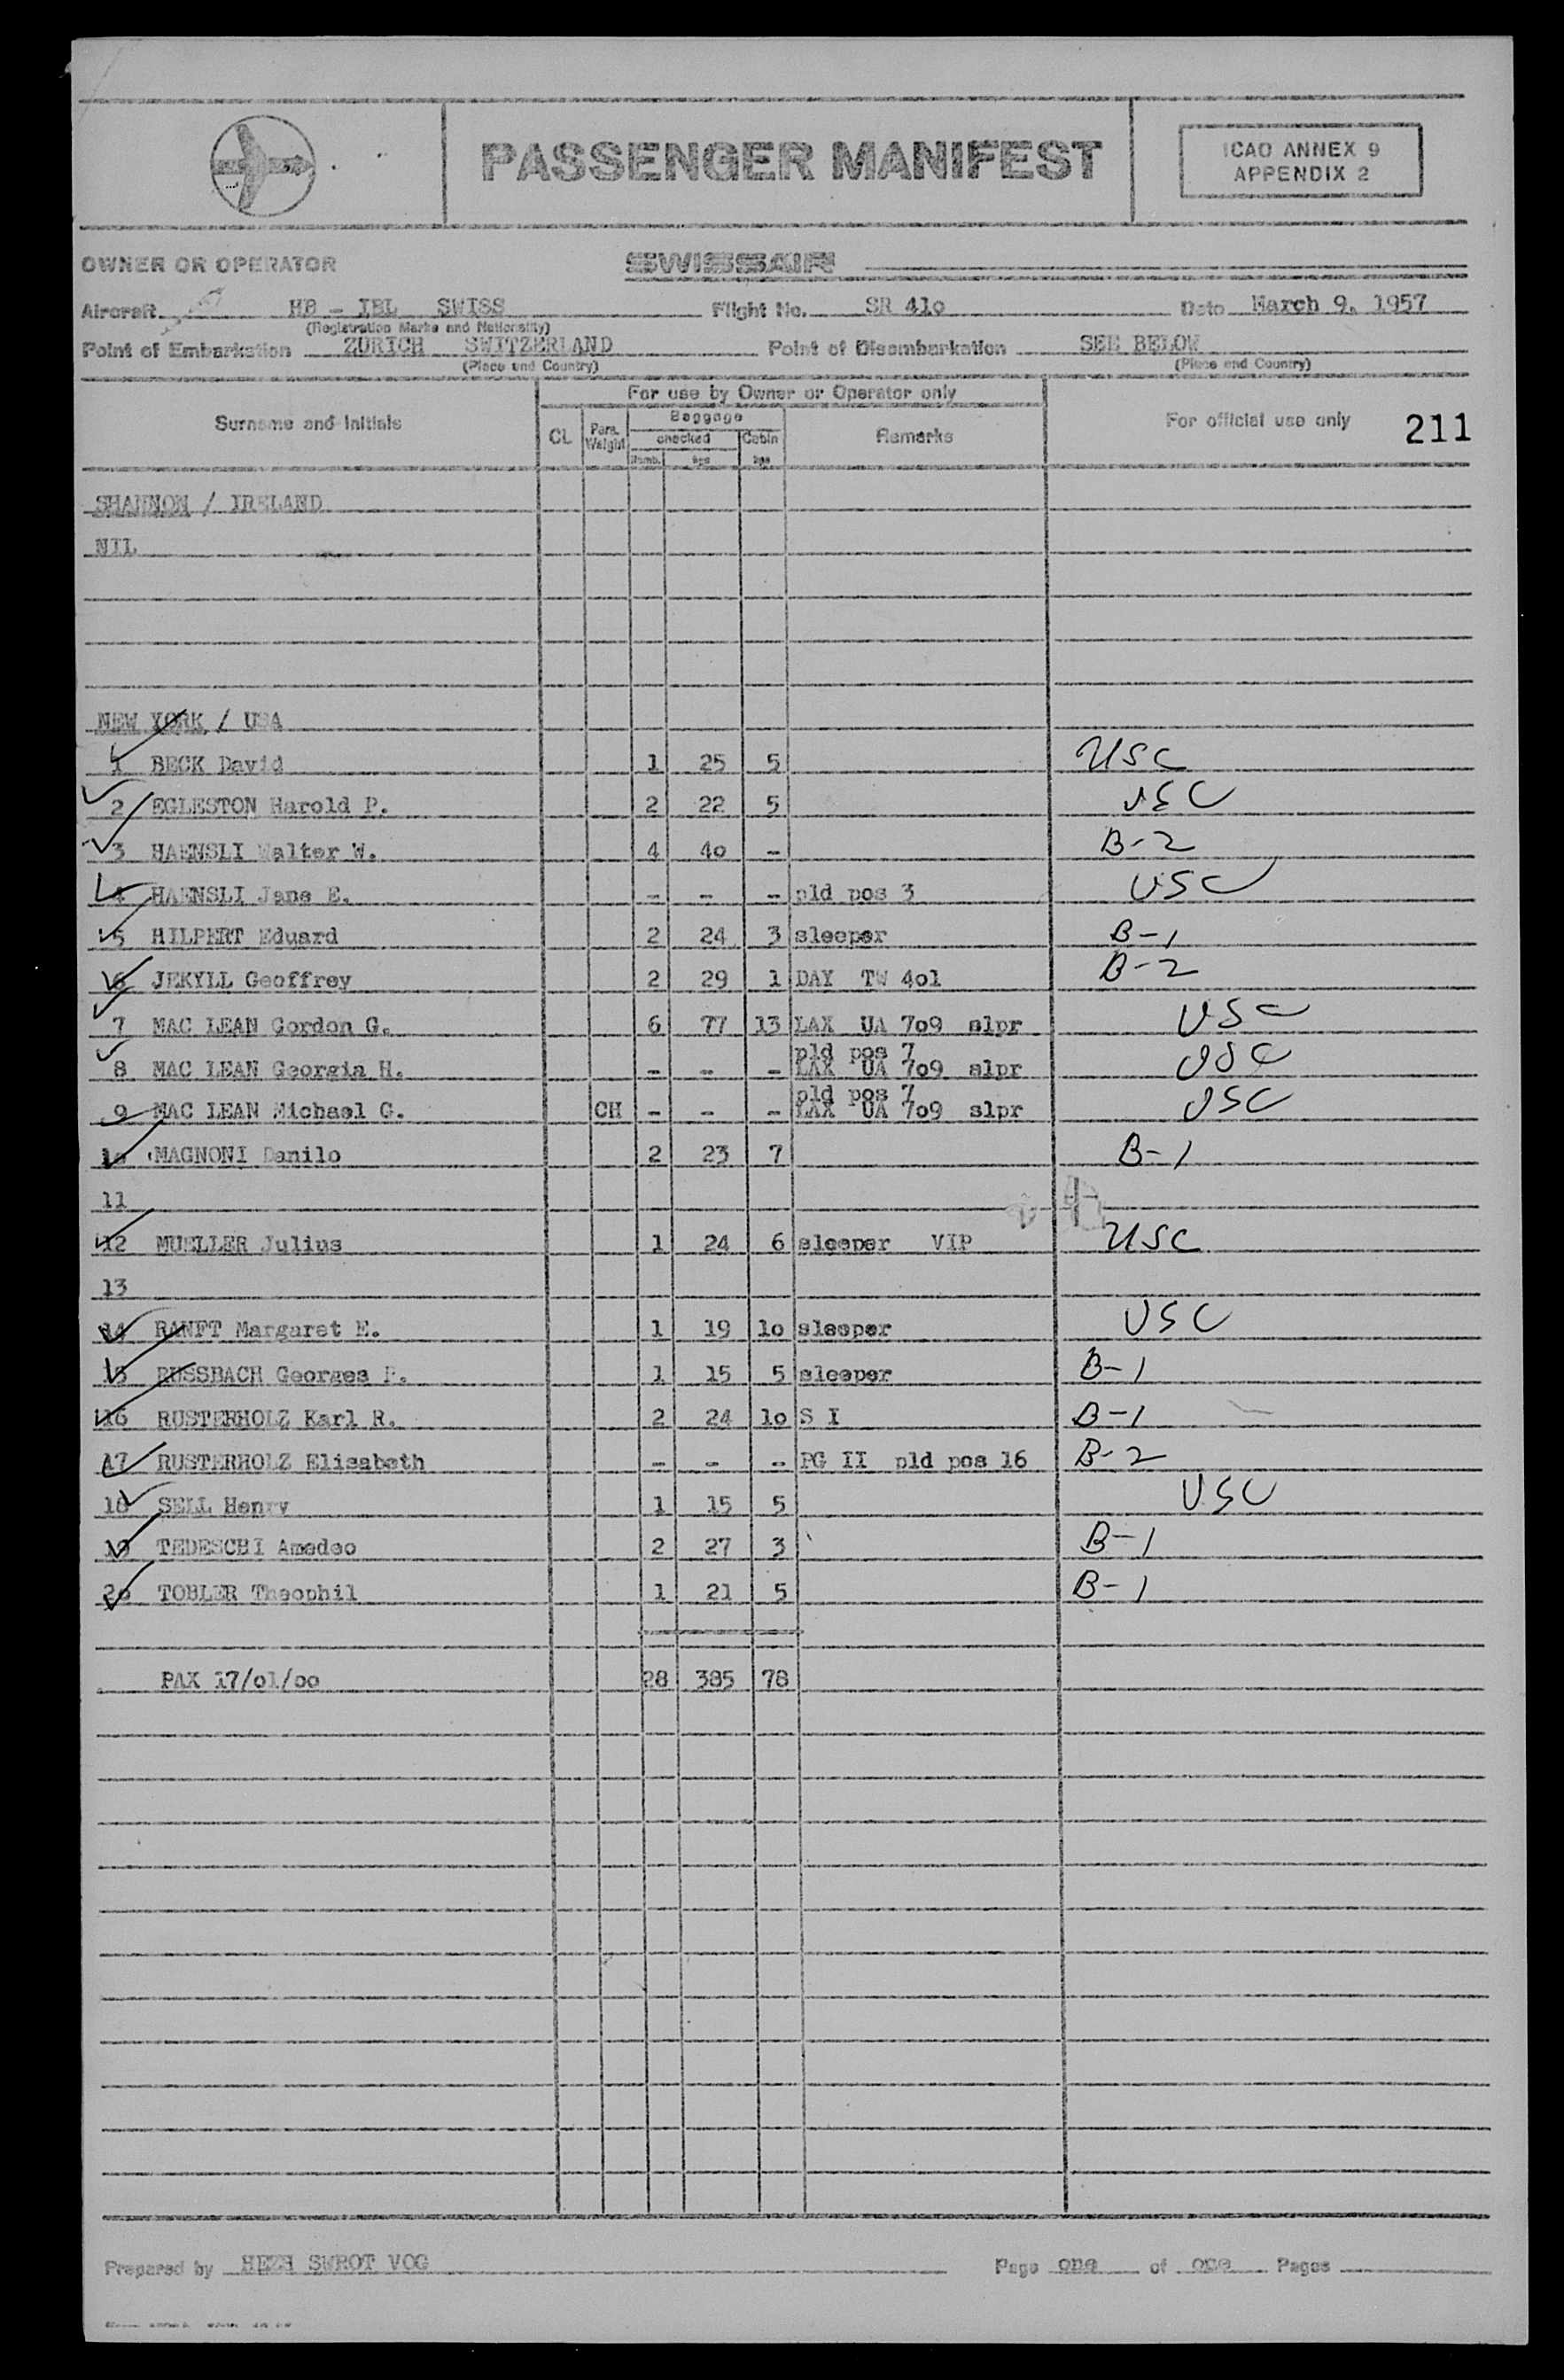 PASSENGER MANIFEST
ICAO ANNEX 9
APPENDIX 2
OWNER OR OPERATOR SWISSAIR
Aircraft HB - IBL SWISS Flight No. SR 41o Date March 9. 1957
(Registration Marks and Nationality)
Point of Embarkation ZURICH SWITZERLAND Point of Disembarkation SEE BELOW
(Place and Country) (Place and Country)
For use by Owner or Operator only
Surname and Initials CL Pass. Weight Baggage checked Numb. kgs Cabin kgs Remarks For official use only 211
SHANNON / IRELAND
NIL
NEW YORK / USA
1 BECK David 1 25 5 USC
2 EGLESTON Harold P. 2 22 5 USC
3 HAENSLI Walter W. 4 4o - B-2
4 HAENSLI Jane E. - - - pld pos 3 USC
5 HILPERT Eduard 2 24 3 sleeper B-1
6 JEKYLL Geoffrey 2 29 1 DAY TW 4o1 B-2
7 MAC LEAN Gordon G. 6 77 13 LAX UA 7o9 slpr USC
pld pos 7
8 MAC LEAN Georgia H. - - - LAX UA 7o9 slpr USC
pld pos 7
9 MAC LEAN Michael G. CH - - - LAX UA 7o9 slpr USC
1o MAGNONI Danilo 2 23 7 B-1
11
12 MUELLER Julius 1 24 6 sleeper VIP USC
13
14 RANFT Margaret E. 1 19 1o sleeper USC
15 RUSSBACH Georges 1 15 5 sleeper B-1
16 RUSTERHOLZ Karl R. 2 24 1o S I B-1
17 RUSTERHOLZ Elisabeth - - - PG II pld pos 16 B-2
18 SELL Henry 1 15 5 USC
19 TEDESCHI Amedeo 2 27 3 B-1
2o TOBLER Theophil 1 21 5 B-1
PAX 17/o1/oo 28 385 78
Prepared by HEZH SWROT VOG Page one of one Pages